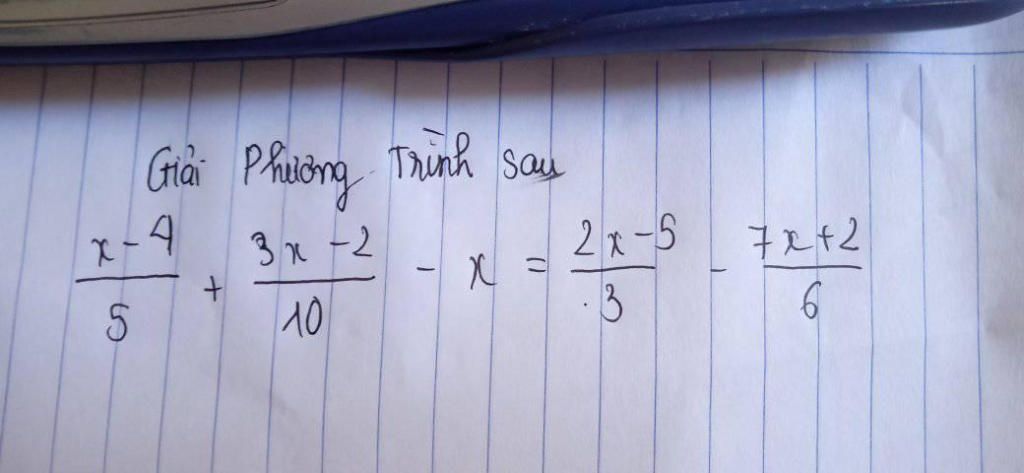 Giải Phương Trình sau
x-4/5 + 3x-2/10 - x = 2x-5/3 - 7x+2/6